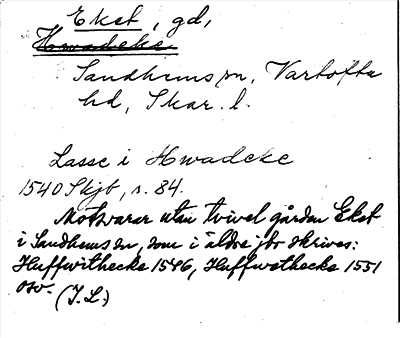 Ekst, gd,
Hwadeke
Sandhems sn, Vartofta
hd, Skar. l.
Lasse i Hwadeke
1540 Skjb, s. 84.
Motsvarar utan tvivel gården Ekst
i Sandhems sn, som i äldre jbr skrives:
Huffwithecke 1546, Huffwethecke 1551
osv. (I.L.)